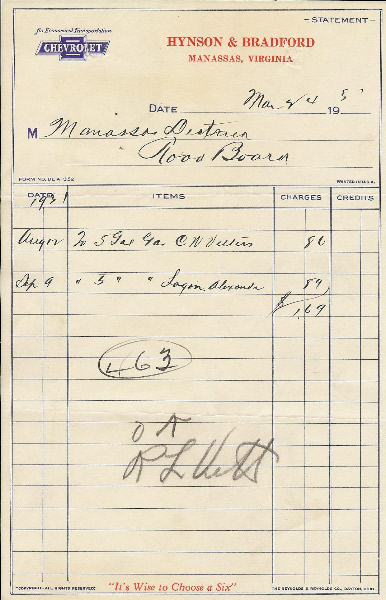 – STATEMENT –
for Economical Transportation
CHEVROLET
HYNSON & BRADFORD
MANASSAS, VIRGINIA
DATE Mar 24 19
M Manassas District
Road Board
PRINTED IN U.S.A.
DATE ITEMS CHARGES CREDITS
1931
To 5 Gal Gas C. W.
Sep 9 " 5 " "
1.69
63
OK
"COPYRIGHT- ALL RIGHTS RESERVED" "It's Wise to Choose a Six" THE REYNOLDS & REYNOLDS CO., DAYTON, OHIO